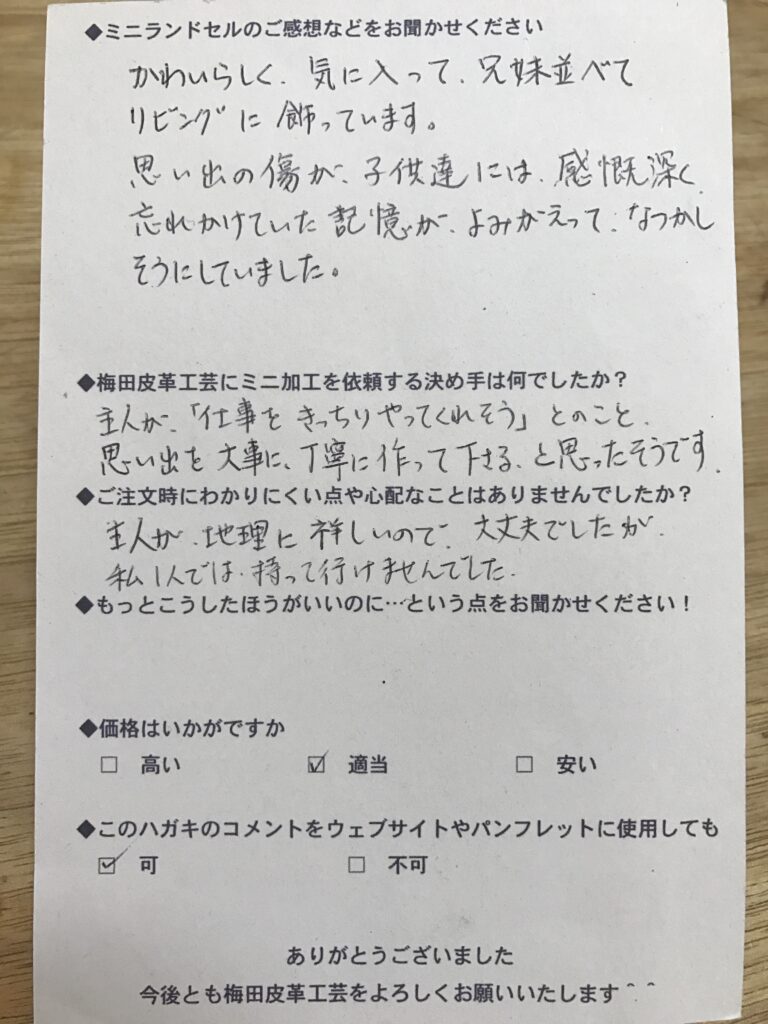 ◆ミニランドセルのご感想などをお聞かせください
かわいらしく、気に入って、兄妹並べて
リビングに飾っています。
思い出の傷が、子供達には、感慨深く、
忘れかけていた記憶が、よみがえって、なつかし
そうにしていました。
◆梅田皮革工芸にミニ加工を依頼する決め手は何でしたか？
主人が、「仕事をきっちりやってくれそう」とのこと、
思い出を大事に、丁寧に作って下さる、と思ったそうです。
◆ご注文時にわかりにくい点や心配なことはありませんでしたか？
主人が、地理に詳しいので、大丈夫でしたが、
私1人では、持って行けませんでした。
◆もっとこうしたほうがいいのに…という点をお聞かせください！
◆価格はいかがですか
□ 高い ☑ 適当 □ 安い
◆このハガキのコメントをウェブサイトやパンフレットに使用しても
☑ 可 □ 不可
ありがとうございました
今後とも梅田皮革工芸をよろしくお願いいたします＾＾